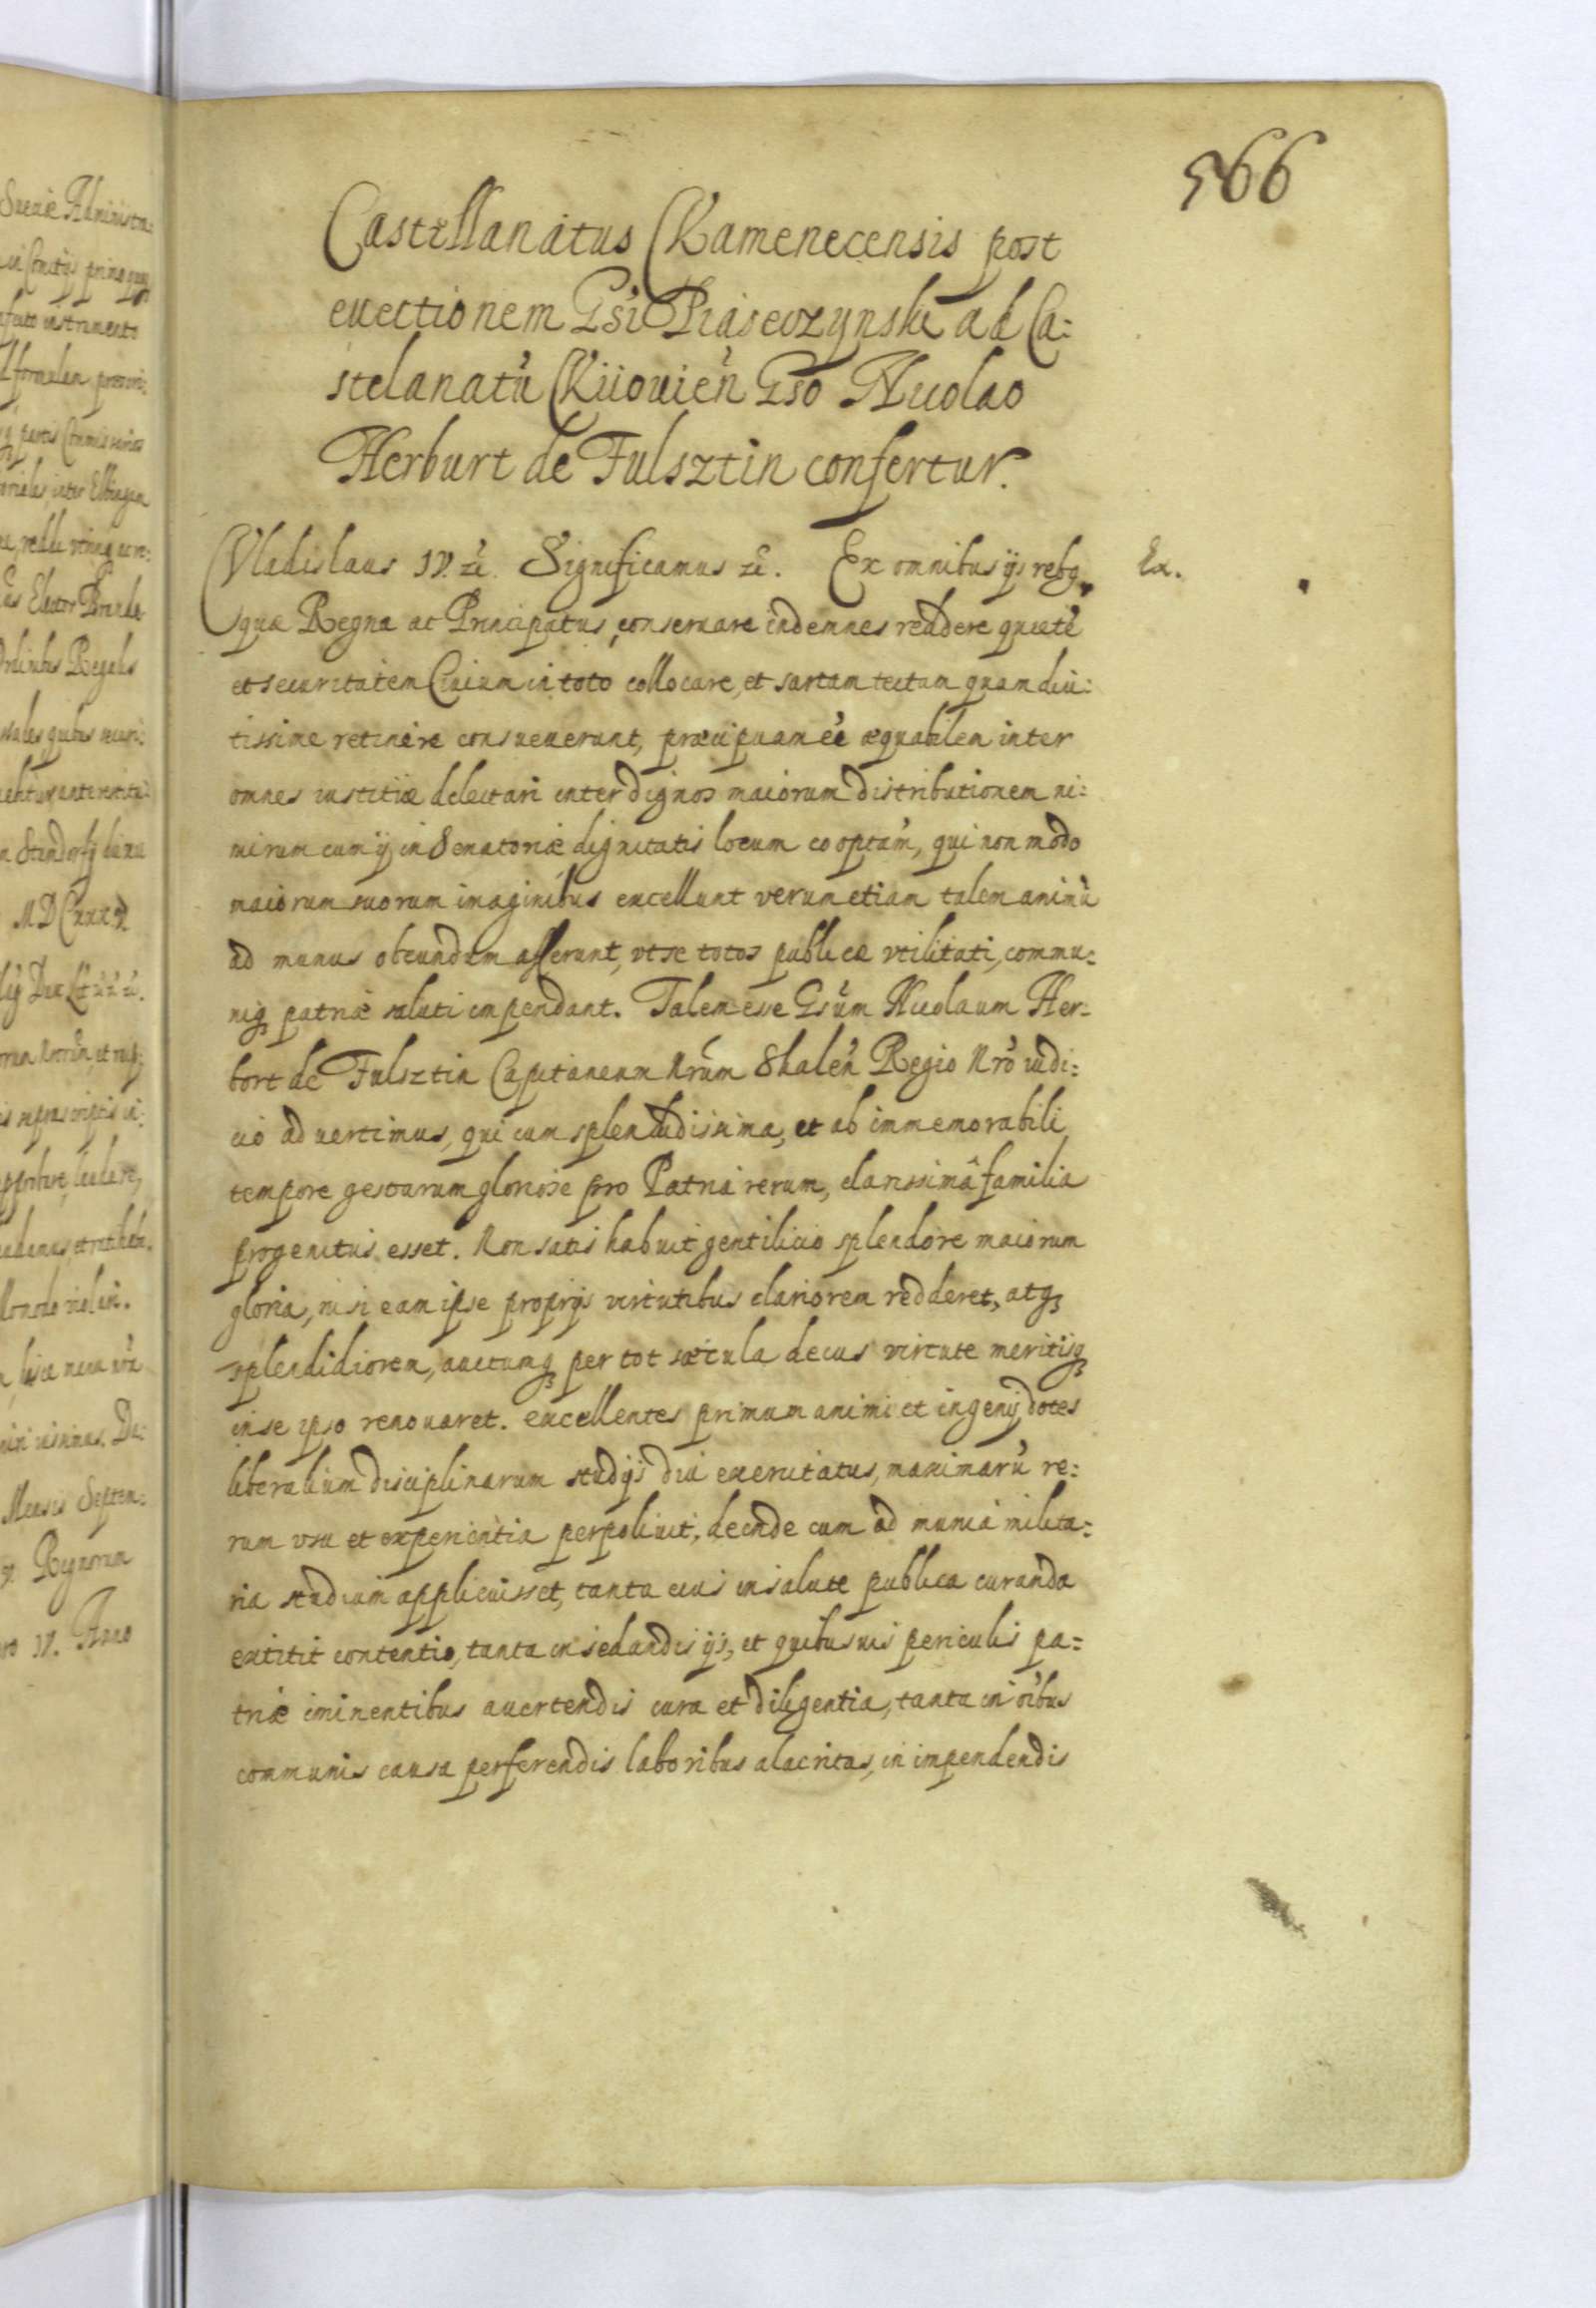 566
Castellanatus Kamenecensis post
euectionem Gsi Piaseczynski ad Ca:
stelanatu Kiiouien Gso Nicolao
Herburt de Fulsztin confertur.
Vladislaus IV. &c. Significamus &c. Ex omnibus ijs rebq
Ex.
quæ Regna ac Principatus conseruare indemnes reddere quiete
et securitatem Ciuium in toto collocare, et sartam tectam quam diu:
tissime retinere consueuerunt, præcipuam eē æquabilem inter
omnes iustitiæ delectari inter dignos maiorum distributionem ni:
mirum cum ij in Senatoriæ dignitatis locum cooptam, qui non modo
maiorum suorum imaginibus excellunt verum etiam talem animu
ad munus obeundum afferunt, vt se totos publicæ vtilitati, commu:
niq patriæ saluti impendant. Talem esse Gsum Nicolaum Her:
bort de Fulsztin Capitaneum Nrum Skalen Regio Nro iudi:
cio aduertimus, qui cum splendidissima, et ab immemorabili
tempore gestarum gloriose pro Patria rerum, clarissimâ familia
progenitus esset. Non satis habuit gentilicio splendore maiorum
gloria, nisi eam ipse proprijs virtutibus clariorem redderet, atq
splendidiorem, auctumq per tot sæcula decus virtute meritisq
in se ipso renouaret. excellentes primum animi et ingenij dotes
liberalium disciplinarum studijs diu exercitatus, maximaru re:
rum vsu et experientia perpoliuit, deinde cum ad munia milita:
ria studium applicuisset, tanta eius in salute publica curanda
extitit contentio, tanta in sedandis ijs, et quibusuis periculis pa:
triæ iminentibus auertendis cura et diligentia, tanta in oibus
communis causa perferendis laboribus alacritas, in impendendis